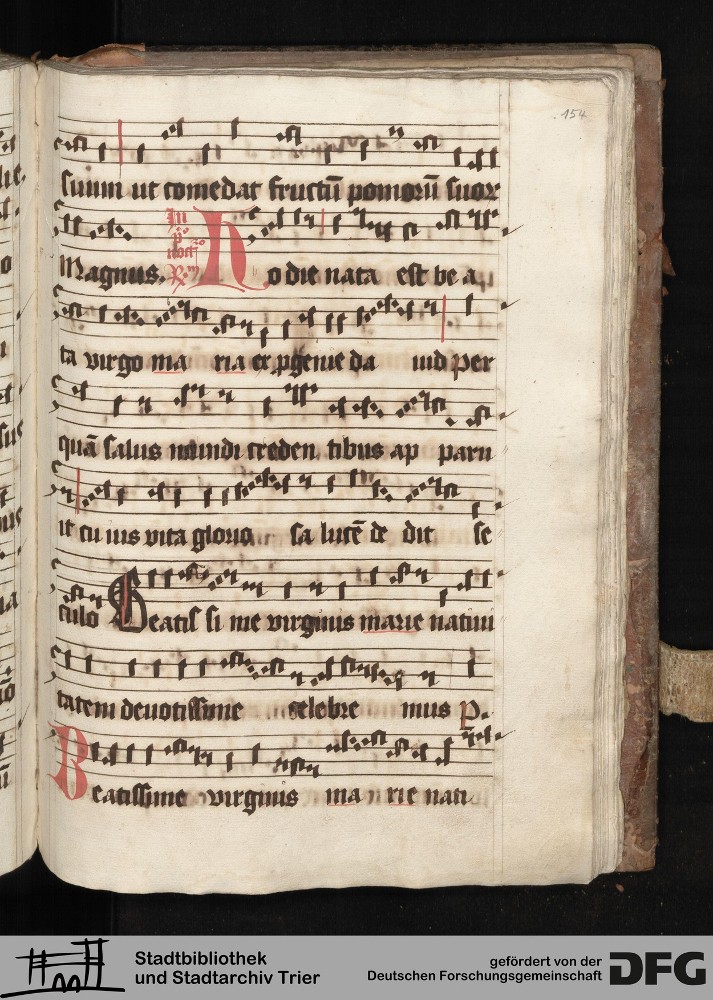 154
suum ut comedat fructū pomorū suor
Magnus. In pº noctº R Hodie nata est be a
ta virgo ma ria ex pgenie da uid Per
quā salus mundi creden tibus ap paru
it cu ius vita gloriosa lucē de dit se
culo Beatis si me virginis marie natiui
tatem deuotissime celebre mus P.
Beatissime virginis ma rie nati
Stadtbibliothek
und Stadtarchiv Trier
gefördert von der
Deutschen Forschungsgemeinschaft
DFG